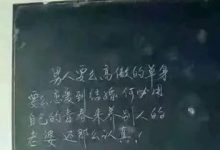 男人要么高傲的单身
要么恋爱到结婚何必用
自己的青春来养别人的
老婆还那么认真!